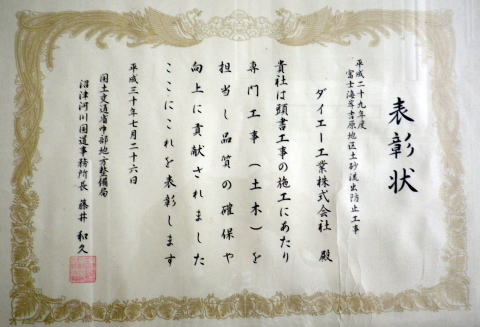 表彰状
平成二十九年度
富士海岸吉原地区土砂流出防止工事
ダイエー工業株式会社 殿
貴社は頭書工事の施工にあたり
専門工事(土木)を
担当し品質の確保や
向上に貢献されました
ここにこれを表彰します
平成三十年七月二十六日
国土交通省中部地方整備局
沼津河川国道事務所長 藤井 和久